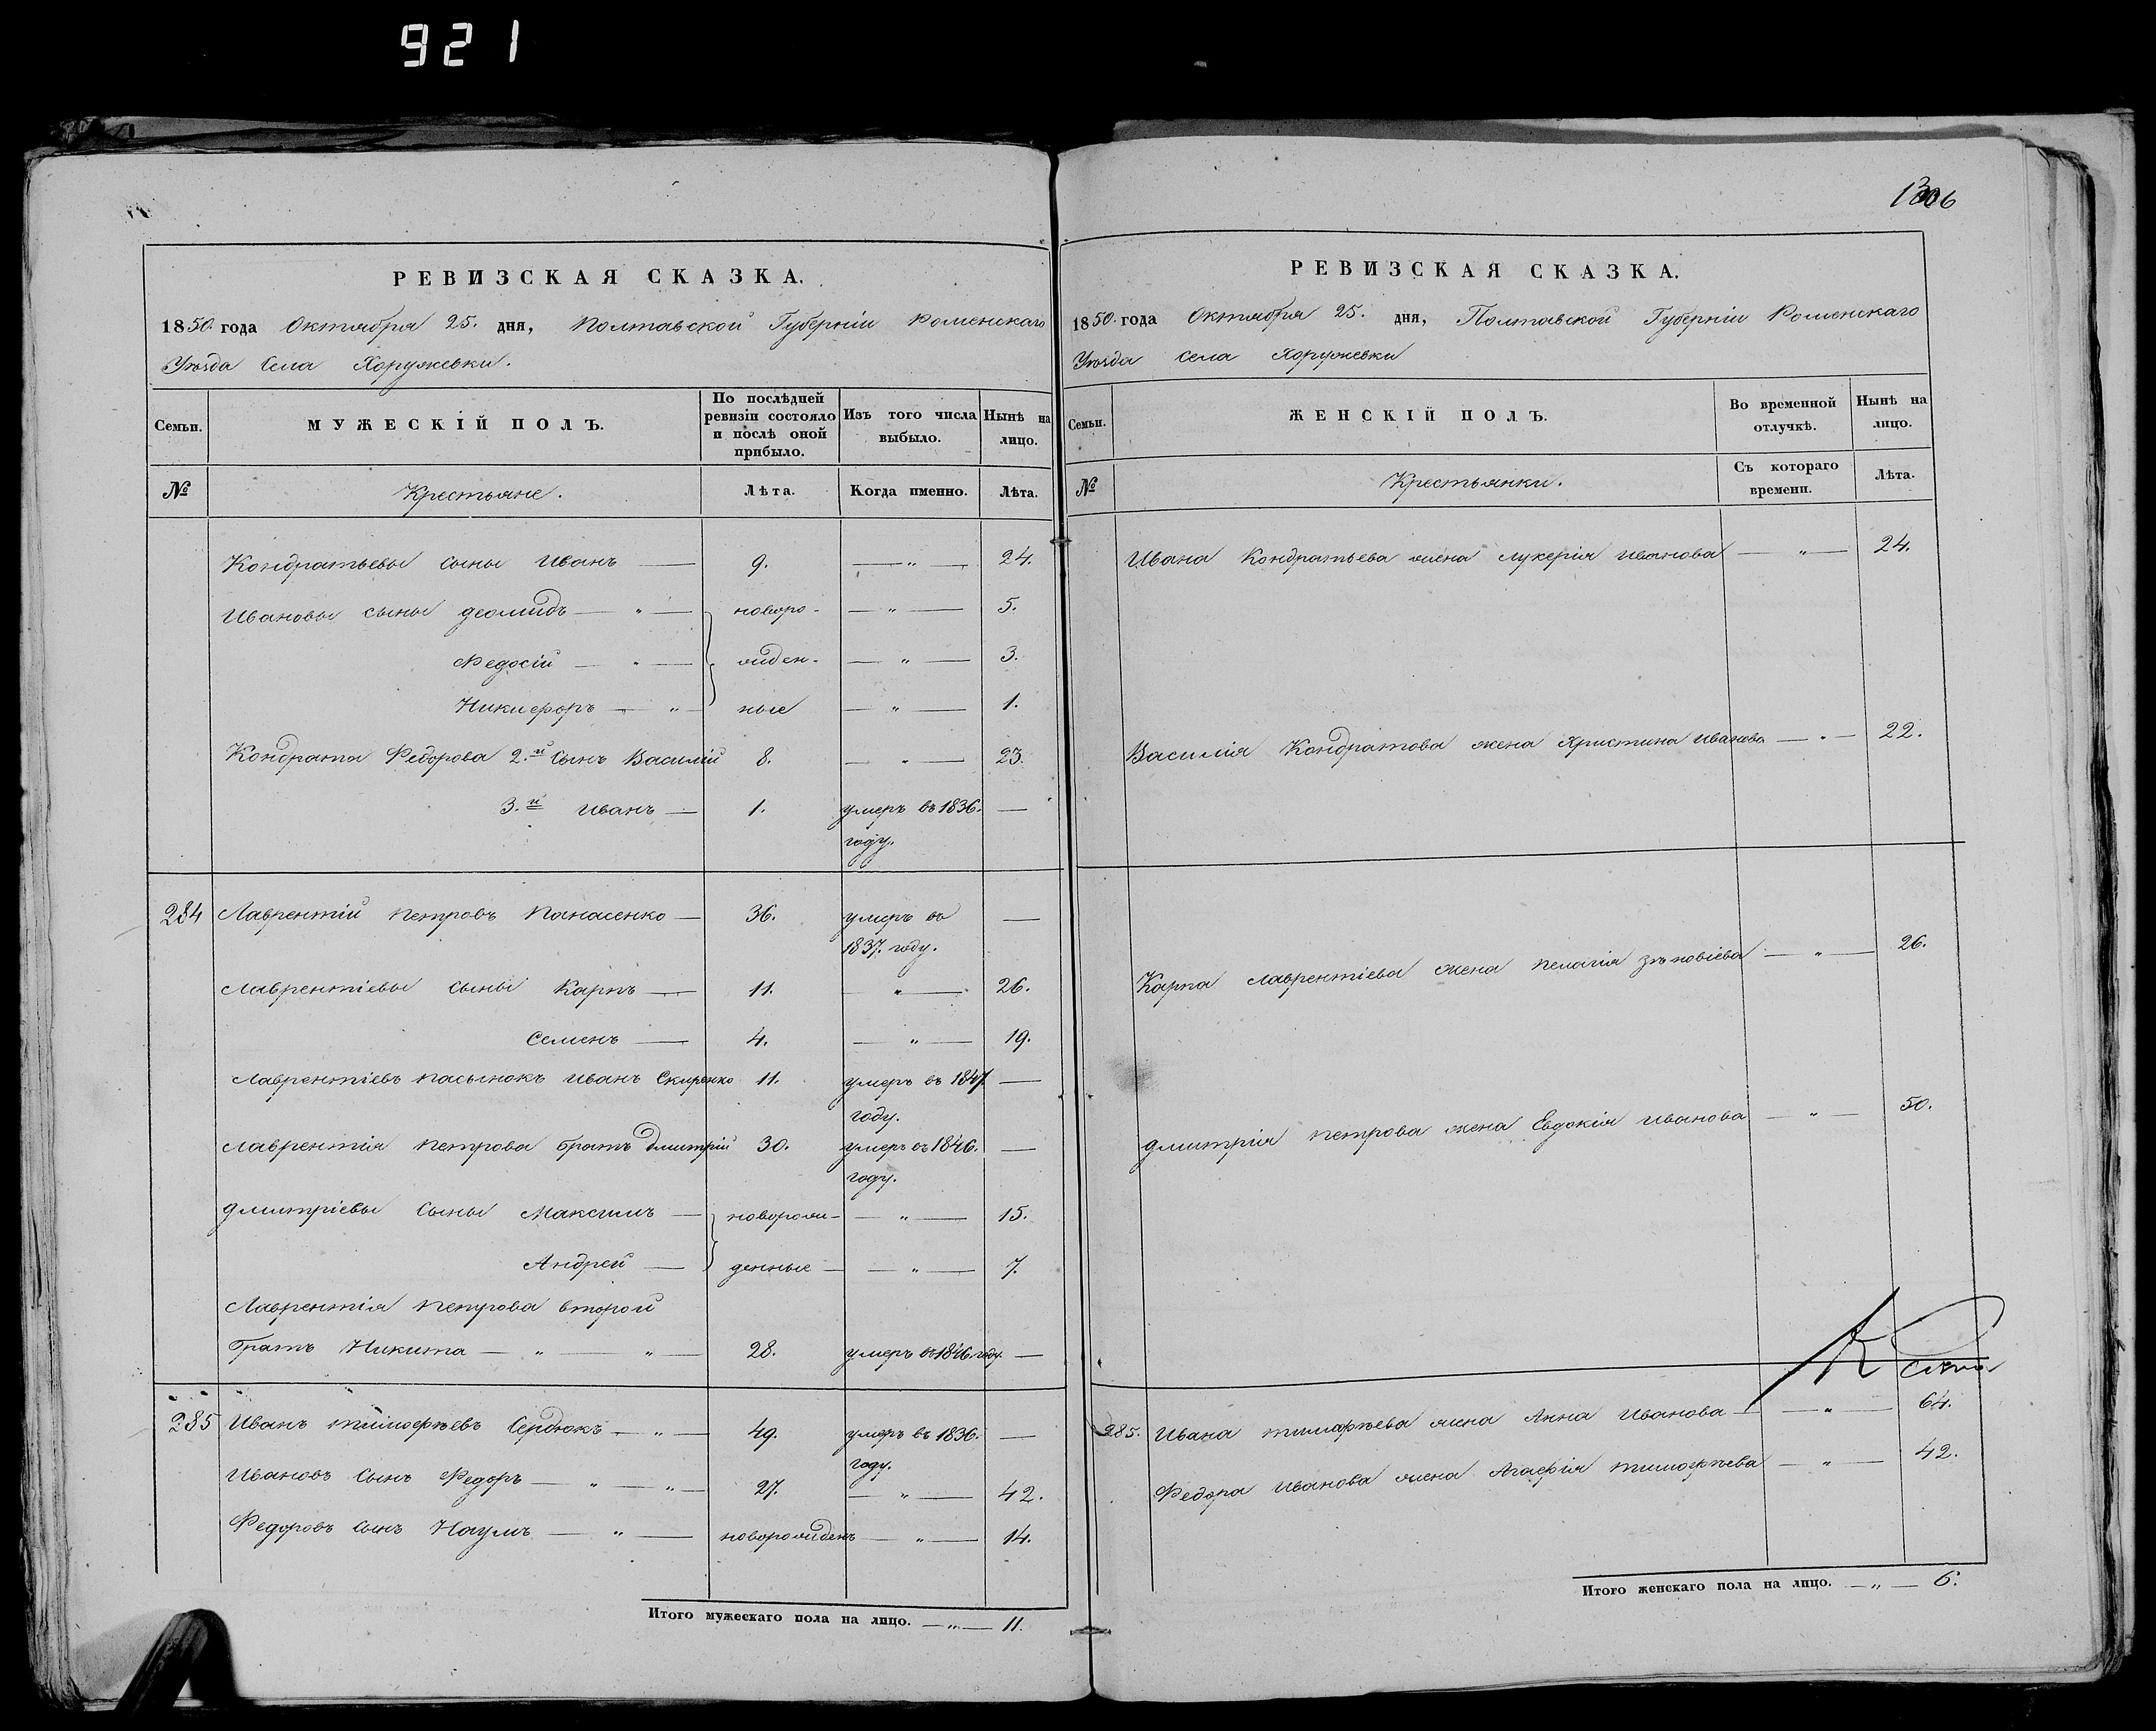 921
РЕВИЗСКАЯ СКАЗКА.
1850. года Октября 25. дня, Полтавской Губерніи Роменскаго
Уѣзда Села Хоружевки.
Семьи.
МУЖЕСКІЙ ПОЛЪ.
По послѣдней ревизіи состояло и послѣ оной прибыло.
Изъ того числа выбыло.
Нынѣ на лицо.
№
Крестьяне.
Лѣта.
Когда именно.
Лѣта.
Кондратьевы сыны Иванъ — 9. — " — 24.
Ивановы сыны Деомидъ — " — новоро- — " — 5.
Федосій — " — жден- — " — 3.
Никифоръ — " — ные — " — 1.
Кондрата Федорова 2.й сынъ Василій 8. — " — 23.
3.й Иванъ — 1. умеръ въ 1836. —
году.
284 Лаврентій Петровъ Панасенко — 36. умеръ въ —
1837. году.
Лаврентіевы сыны Карпъ — 11. — " — 26.
Семенъ — 4. — " — 19.
Лаврентіевъ пасынокъ Иванъ Скиренко 11. умеръ въ 1847 —
году.
Лаврентія Петрова братъ Дмитрій 30. умеръ въ 1846. —
году.
Дмитріевы сыны Максимъ — новорож- — " — 15.
Андрей — денные — — " — 7.
Лаврентія Петрова второй
братъ Никита — " — " — 28. умеръ въ 1846 году. —
285 Иванъ Тимофѣевъ Сердюкъ — " — 49. умеръ въ 1836. —
году.
Ивановъ сынъ Федоръ — " — " — 27. — " — 42.
Федоровъ сынъ Наумъ — " — новорожденъ — " — 14.
Итого мужескаго пола на лицо. — " — 11.
РЕВИЗСКАЯ СКАЗКА.
1850. года Октября 25. дня, Полтавской Губерніи Роменскаго
Уѣзда Села Хоружевки
Семьи.
ЖЕНСКІЙ ПОЛЪ.
Во временной отлучкѣ.
Нынѣ на лицо.
№
Крестьянки.
Съ котораго времени.
Лѣта.
Ивана Кондратьева жена Лукерія Иванова — " — 24.
Василія Кондратова жена Христина Иванова — " — 22.
Карпа Лаврентіева жена Пелагія Зѣновіева — " — 26.
Дмитрія Петрова жена Евдокія Иванова — " — 50.
285. Ивана Тимофѣева жена Анна Иванова — " — 64.
Федора Иванова жена Агафія Тимофѣева — " — 42.
Итого женскаго пола на лицо. — " — 6.